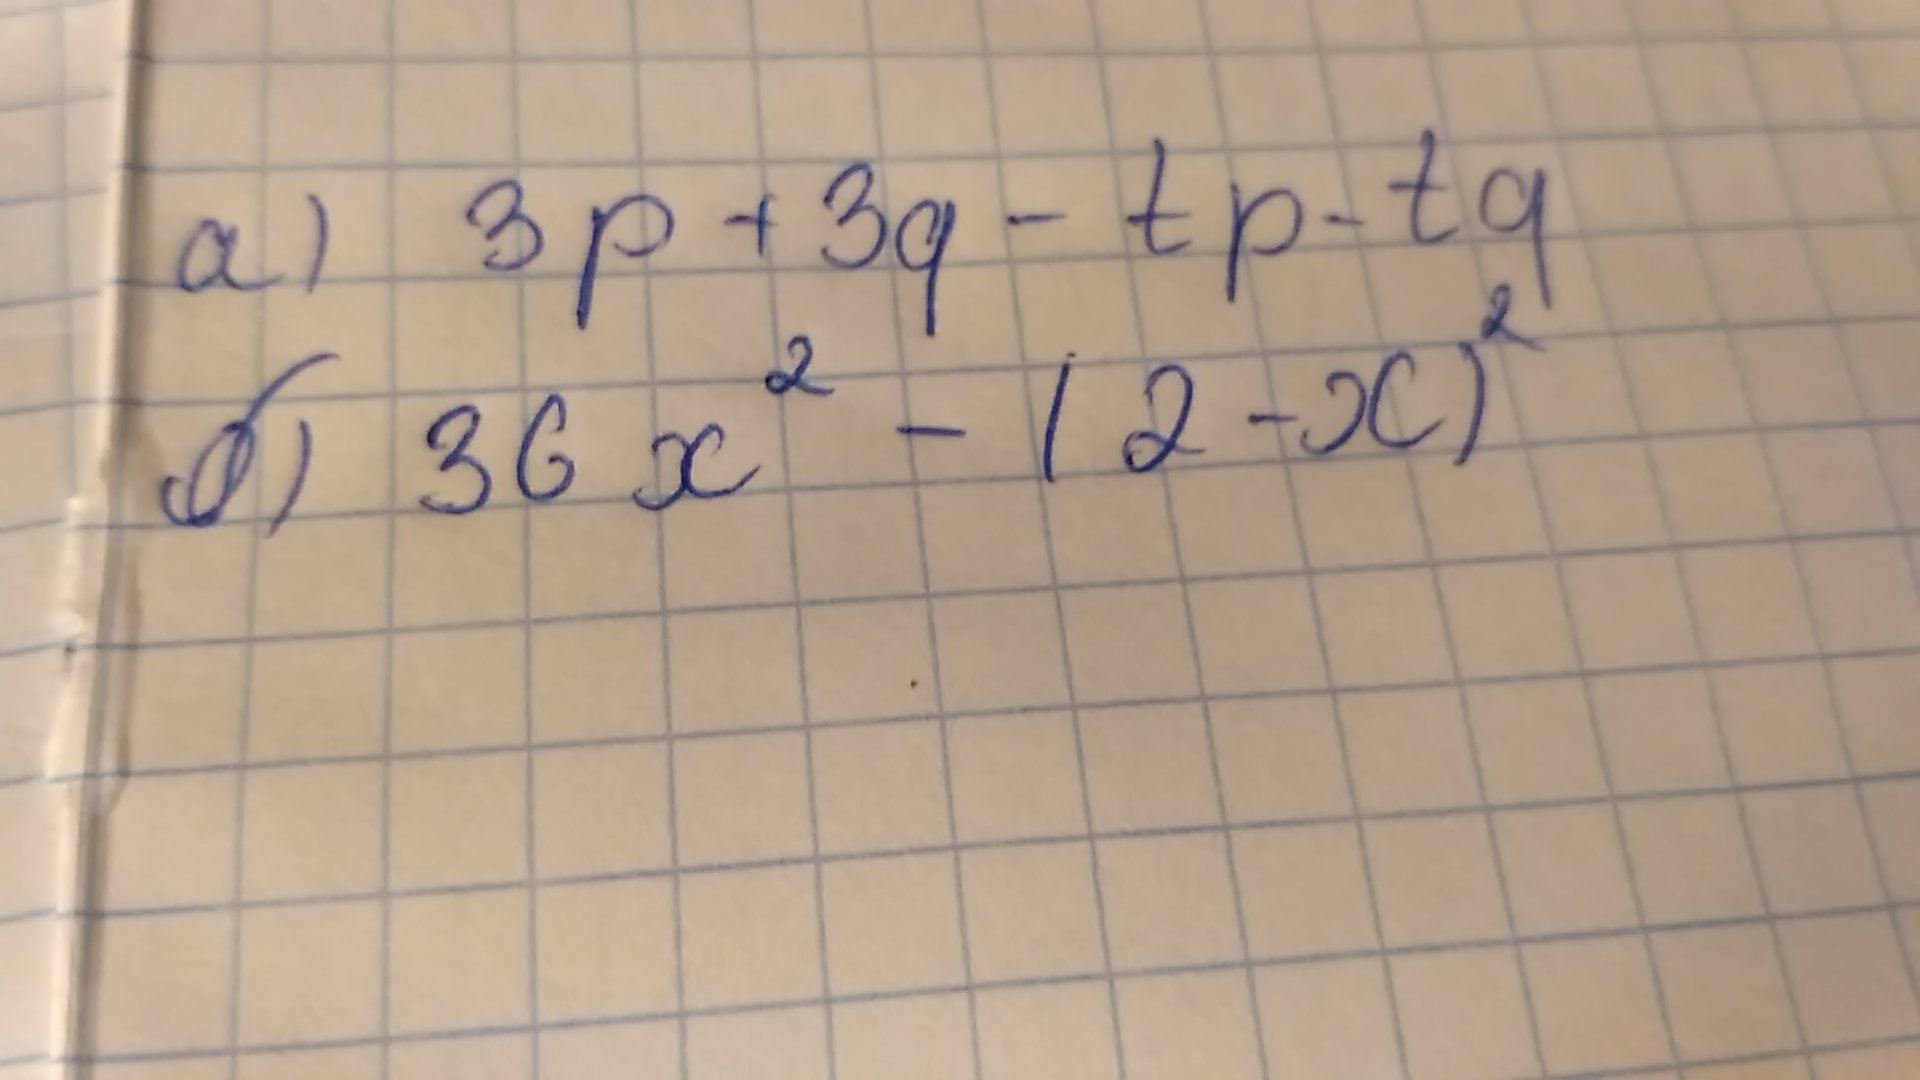 а) 3p + 3q - tp - tq
б) 36x² - (2 - x)²